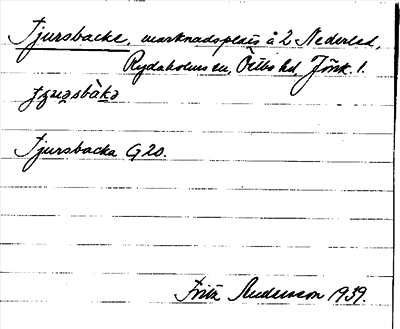 Tjursbacke, marknadsplats å 2 Nederled,
Rydaholms sn, Östbo hd, Jönk. l.
Tjursbacka G20.
Fritz Andersson 1939.